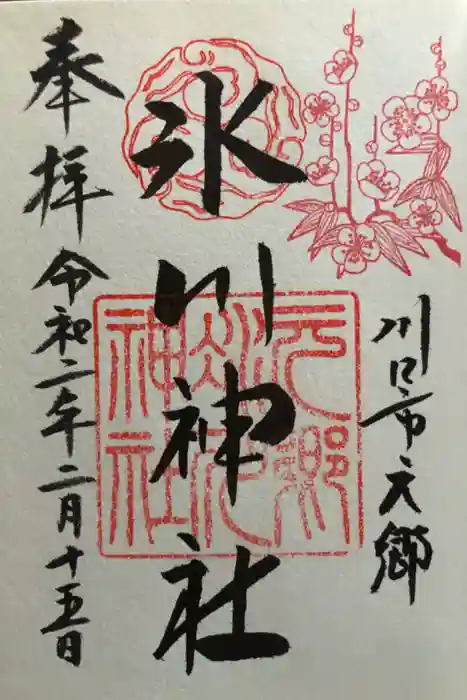 川口市元郷
氷川神社
奉拝 令和二年二月十五日
元郷
氷川
神社